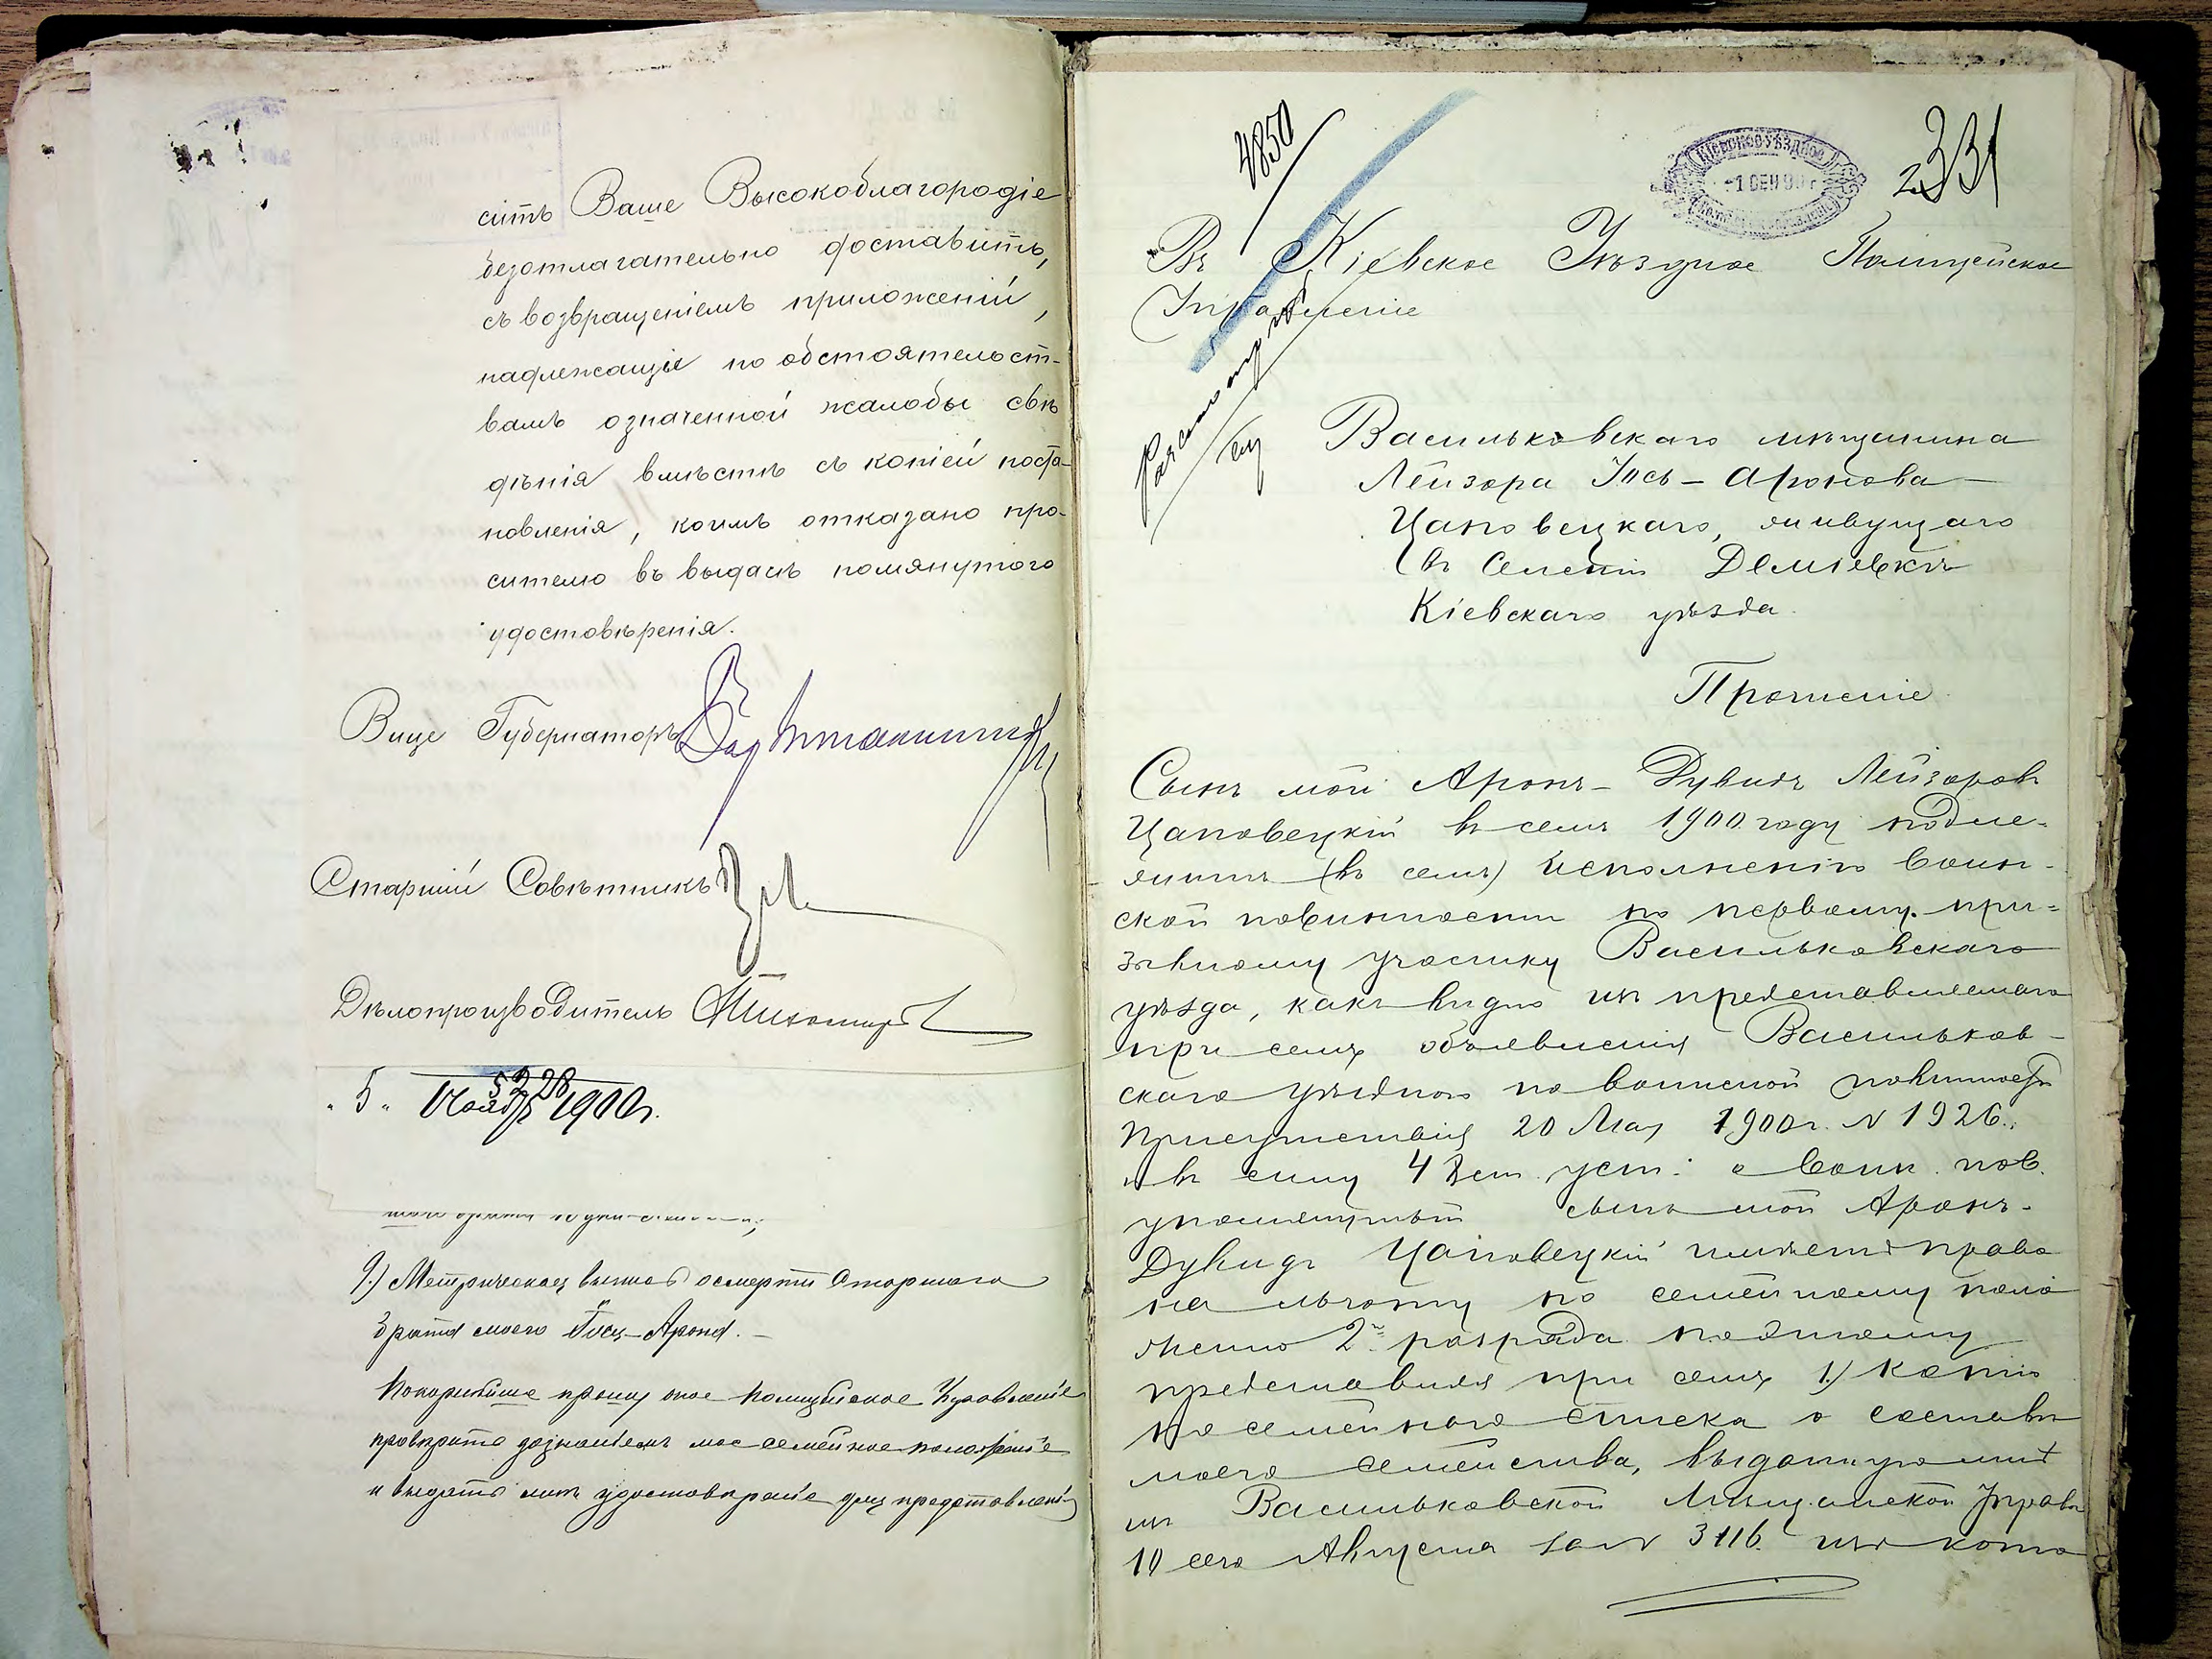 сить Ваше Высокоблагородіе
безотлагательно доставить,
съ возвращеніемъ приложеній,
надлежащіе по обстоятельст-
вамъ означенной жалобы свѣ
дѣнія вмѣстѣ съ копіей поста-
новленія, коимъ отказано про-
сителю въ выдачѣ помянутого
удостовѣренія.
Вице Губернаторъ
Старшій Совѣтникъ
Дѣлопроизводитель
" 5 " 1900 г.
9.) Метрическая выпись о смерти старшаго
брата моего Іось-Арона. —
Покорнѣйше прошу оное Полицейское Управленіе
провѣрить дознаніемъ мое семейное положеніе
и выдать мнѣ удостовѣреніе для представленія
4850
КІЕВСКОЕ УѢЗДНОЕ
-1 СЕН 900
331
Въ Кіевское Уѣздное Полицейское
Управленіе
Васильковскаго мѣщанина
Лейзора Іось-Аронова
Цаповецкаго, живущаго
въ Селеніи Деміевкѣ
Кіевскаго уѣзда.
Прошеніе
Сынъ мой Аронъ-Дувидъ Лейзоровъ
Цаповецкій въ семъ 1900 году подле-
житъ (въ семъ) исполненію воин-
ской повинности по первому при-
зывному участку Васильковскаго
уѣзда, какъ видно изъ представляемаго
при семъ объявленія Васильков-
скаго уѣзднаго по воинской повинности
Присутствія 20 Мая 1900 г. № 1926.,
и въ силу 48 ст. уст. о воин. пов.
упомянутый сынъ мой Аронъ-
Дувидъ Цаповецкій имѣетъ право
на льготу по семейному поло
женію 2го разряда по этому
представляя при семъ 1.) Копію
посемейнаго списка о составѣ
моего семейства, выданную мнѣ
изъ Васильковской Мѣщанской Управы
10 сего Августа за № 3116. изъ кото